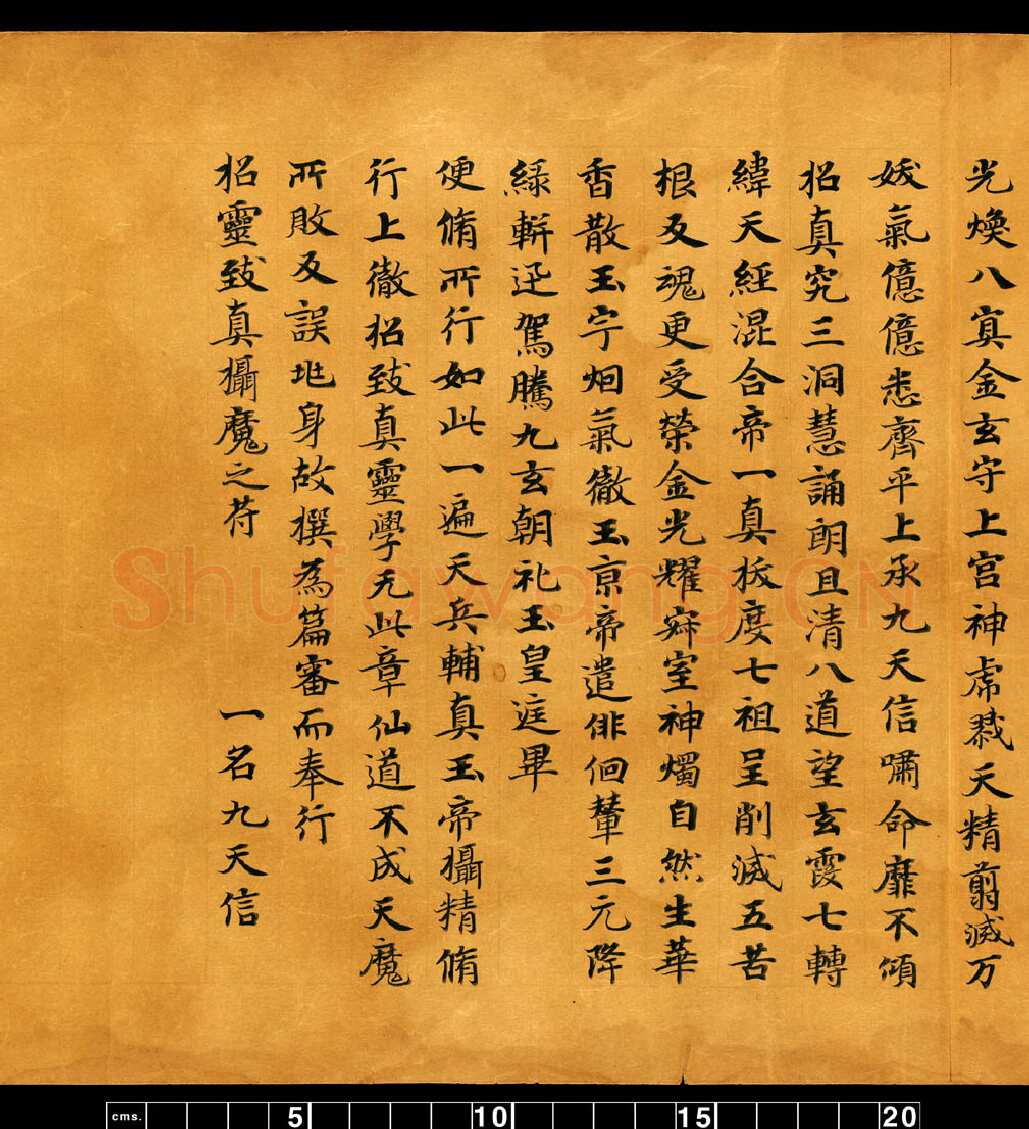 光煥八寘金玄守上宮神虎戮天精翦滅万
妖氣億億悉齊平上承九天信嘯命靡不傾
招真究三洞慧誦朗且清八道望玄霞七轉
緯天經混合帝一真拔度七祖呈削滅五苦
根反魂更受榮金光耀寐室神燭自然生華
香散玉宇烟氣徹玉京帝遣俳佪輦三元降
綠軿迅駕騰九玄朝礼玉皇庭畢
便脩所行如此一遍天兵輔真玉帝攝精脩
行上徹招致真靈學无此章仙道不成天魔
所敗反誤地身故撰為篇審而奉行
招靈致真攝魔之符　一名九天信
Shufawang.CN
cms. 5 10 15 20